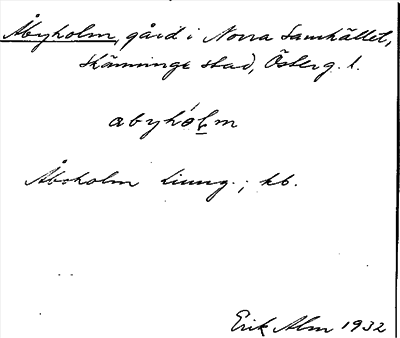 Åbyholm, gård i Norra Samhället,
Skänninge stad, Österg. l.
abyhólm
Åboholm Ljung.; kb.
Erik Alm 1932